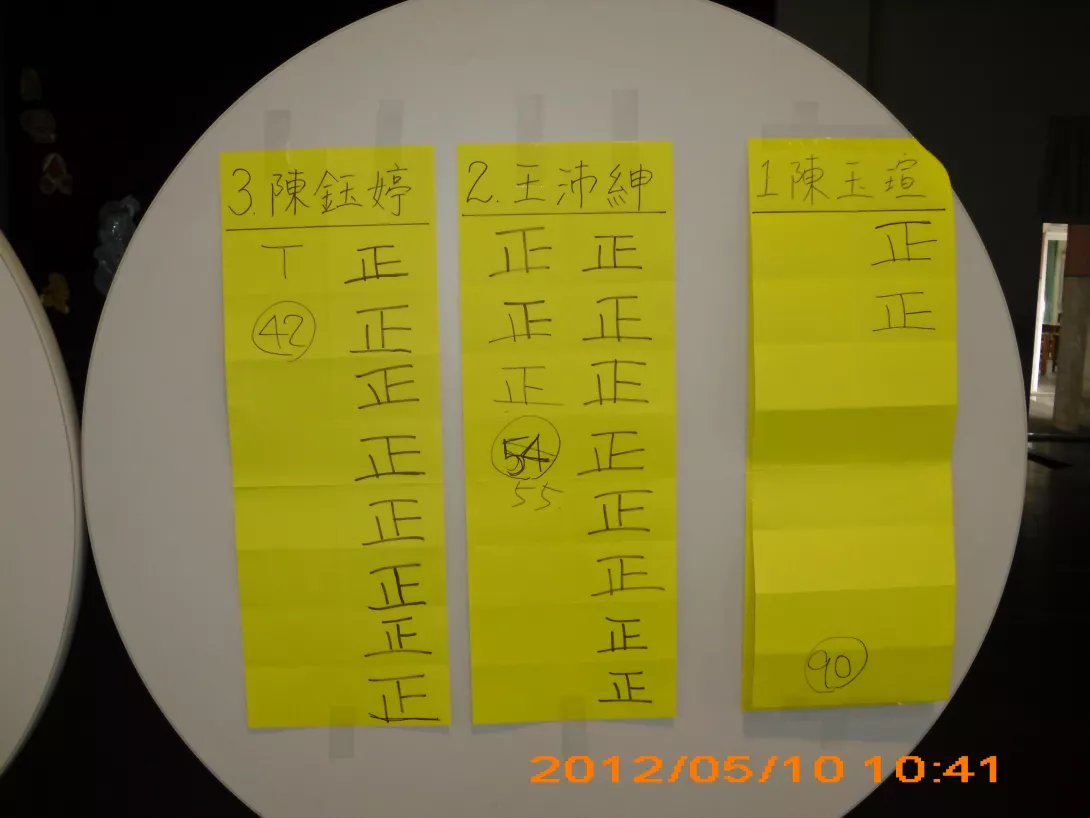 3.陳鈺婷
丅 正
42 正
正
正
正
正
正
正
2.王沛紳
正 正
正 正
正 正
54 正
55 正
正
正
正
1陳玉瑄
正
正
90
2012/05/10 10:41